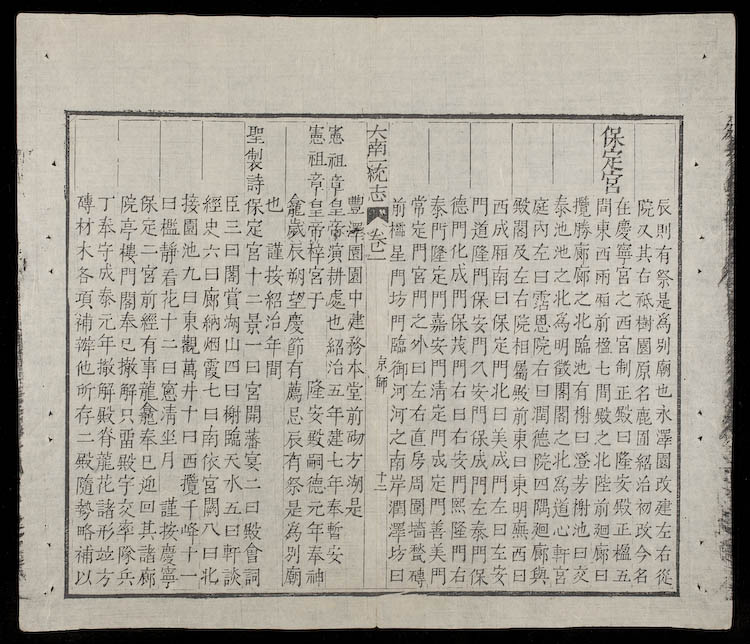 辰則有祭是為別廟也永澤園改建左右從
院又其右祗樹園原名鹿囿紹治初改今名
保定宮
在慶寧宮之西宮制正殿曰隆安殿正楹五
間東西兩廂前楹七間殿之北陛前廻廊曰
攬勝廊廊之北臨池有榭曰澄芳榭池曰交
泰池池之北為明徵閣閣之北為道心軒宮
庭內左曰霑恩院右曰潤德院四隅廻廊與
殿閣及左右院相屬殿前東曰東明廡西曰
西成廂南曰保定門北曰美成門左曰左安
門道隆門保安門久安門保成門左泰門保
德門化成門保茂門右曰右安門熙隆門右
泰門隆定門嘉安門淸定門成定門善美門
常定門宮門之外曰左右直房周圍墻甃磚
前櫺星門坊門臨御河河之南岸潤澤坊曰
大南一統志 卷二 京師 十二
豐澤園園中建務本堂前砌方湖是
憲祖章皇帝演耕處也紹治五年建七年奉暫安
憲祖章皇帝梓宮于 隆安殿嗣德元年奉神
龕歲辰朔望慶節有薦忌辰有祭是為別廟
也 謹按紹治年間
聖製詩保定宮十二景一曰宮開藩宴二曰殿會詞
臣三曰閣賞湖山四曰榭臨天水五曰軒談
經史六曰廊納烟霞七曰南依宮闕八曰北
接園池九曰東觀萬井十曰西攬千峰十一
曰檻靜看花十二曰窻清坐月 謹按慶寧
保定二宮前經有事龍龕奉已迎回其諸廊
院亭樓門閣奉已撤解只留殿宇交率隊兵
丁奉守成泰元年撤解殿脊龍花諸形竝方
磚材木各項補辦他所存二殿隨勢略補以